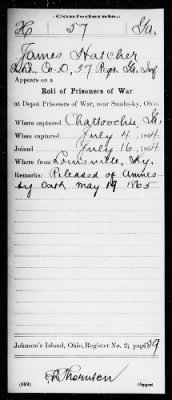 Confederate.
H 57 Ga.
James Hatcher
Co. D, 57 Regt. Ga. Inf
Appears on a
Roll of Prisoners of War
at Depot Prisoners of War, near Sandusky, Ohio.
Where captured Chattoochie, Ga.
When captured July 4, 1864.
Joined July 16, 1864.
Where from Louisville, Ky.
Remarks: Released of Amnes-
ty Oath May 19 1865
Johnson's Island, Ohio, Register No. 2; page 29
(639)
Copyist.